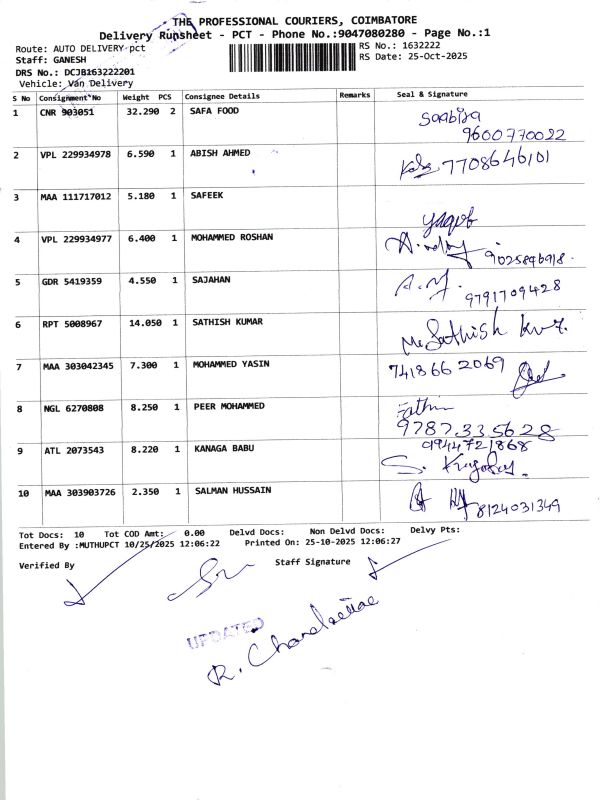 THE PROFESSIONAL COURIERS, COIMBATORE
Delivery Runsheet - PCT - Phone No.:9047080280 - Page No.:1
Route: AUTO DELIVERY-pct
RS No.: 1632222
Staff: GANESH
RS Date: 25-Oct-2025
DRS No.: DCJB163222201
Vehicle: Van Delivery
S No Consignment No Weight PCS Consignee Details Remarks Seal & Signature
1 CNR 903051 32.290 2 SAFA FOOD
9600770022
2 VPL 229934978 6.590 1 ABISH AHMED 7708646101
3 MAA 111717012 5.180 1 SAFEEK
4 VPL 229934977 6.400 1 MOHAMMED ROSHAN 9025896918.
5 GDR 5419359 4.550 1 SAJAHAN
9791709428
6 RPT 5008967 14.050 1 SATHISH KUMAR Sathish
7 MAA 303042345 7.300 1 MOHAMMED YASIN 7418662069
8 NGL 6270808 8.250 1 PEER MOHAMMED
9787335628
9944721868
9 ATL 2073543 8.220 1 KANAGA BABU
10 MAA 303903726 2.350 1 SALMAN HUSSAIN 8124031349
Tot Docs: 10 Tot COD Amt: 0.00 Delvd Docs: Non Delvd Docs: Delvy Pts:
Entered By :MUTHUPCT 10/25/2025 12:06:22 Printed On: 25-10-2025 12:06:27
Verified By Staff Signature
UPDATED